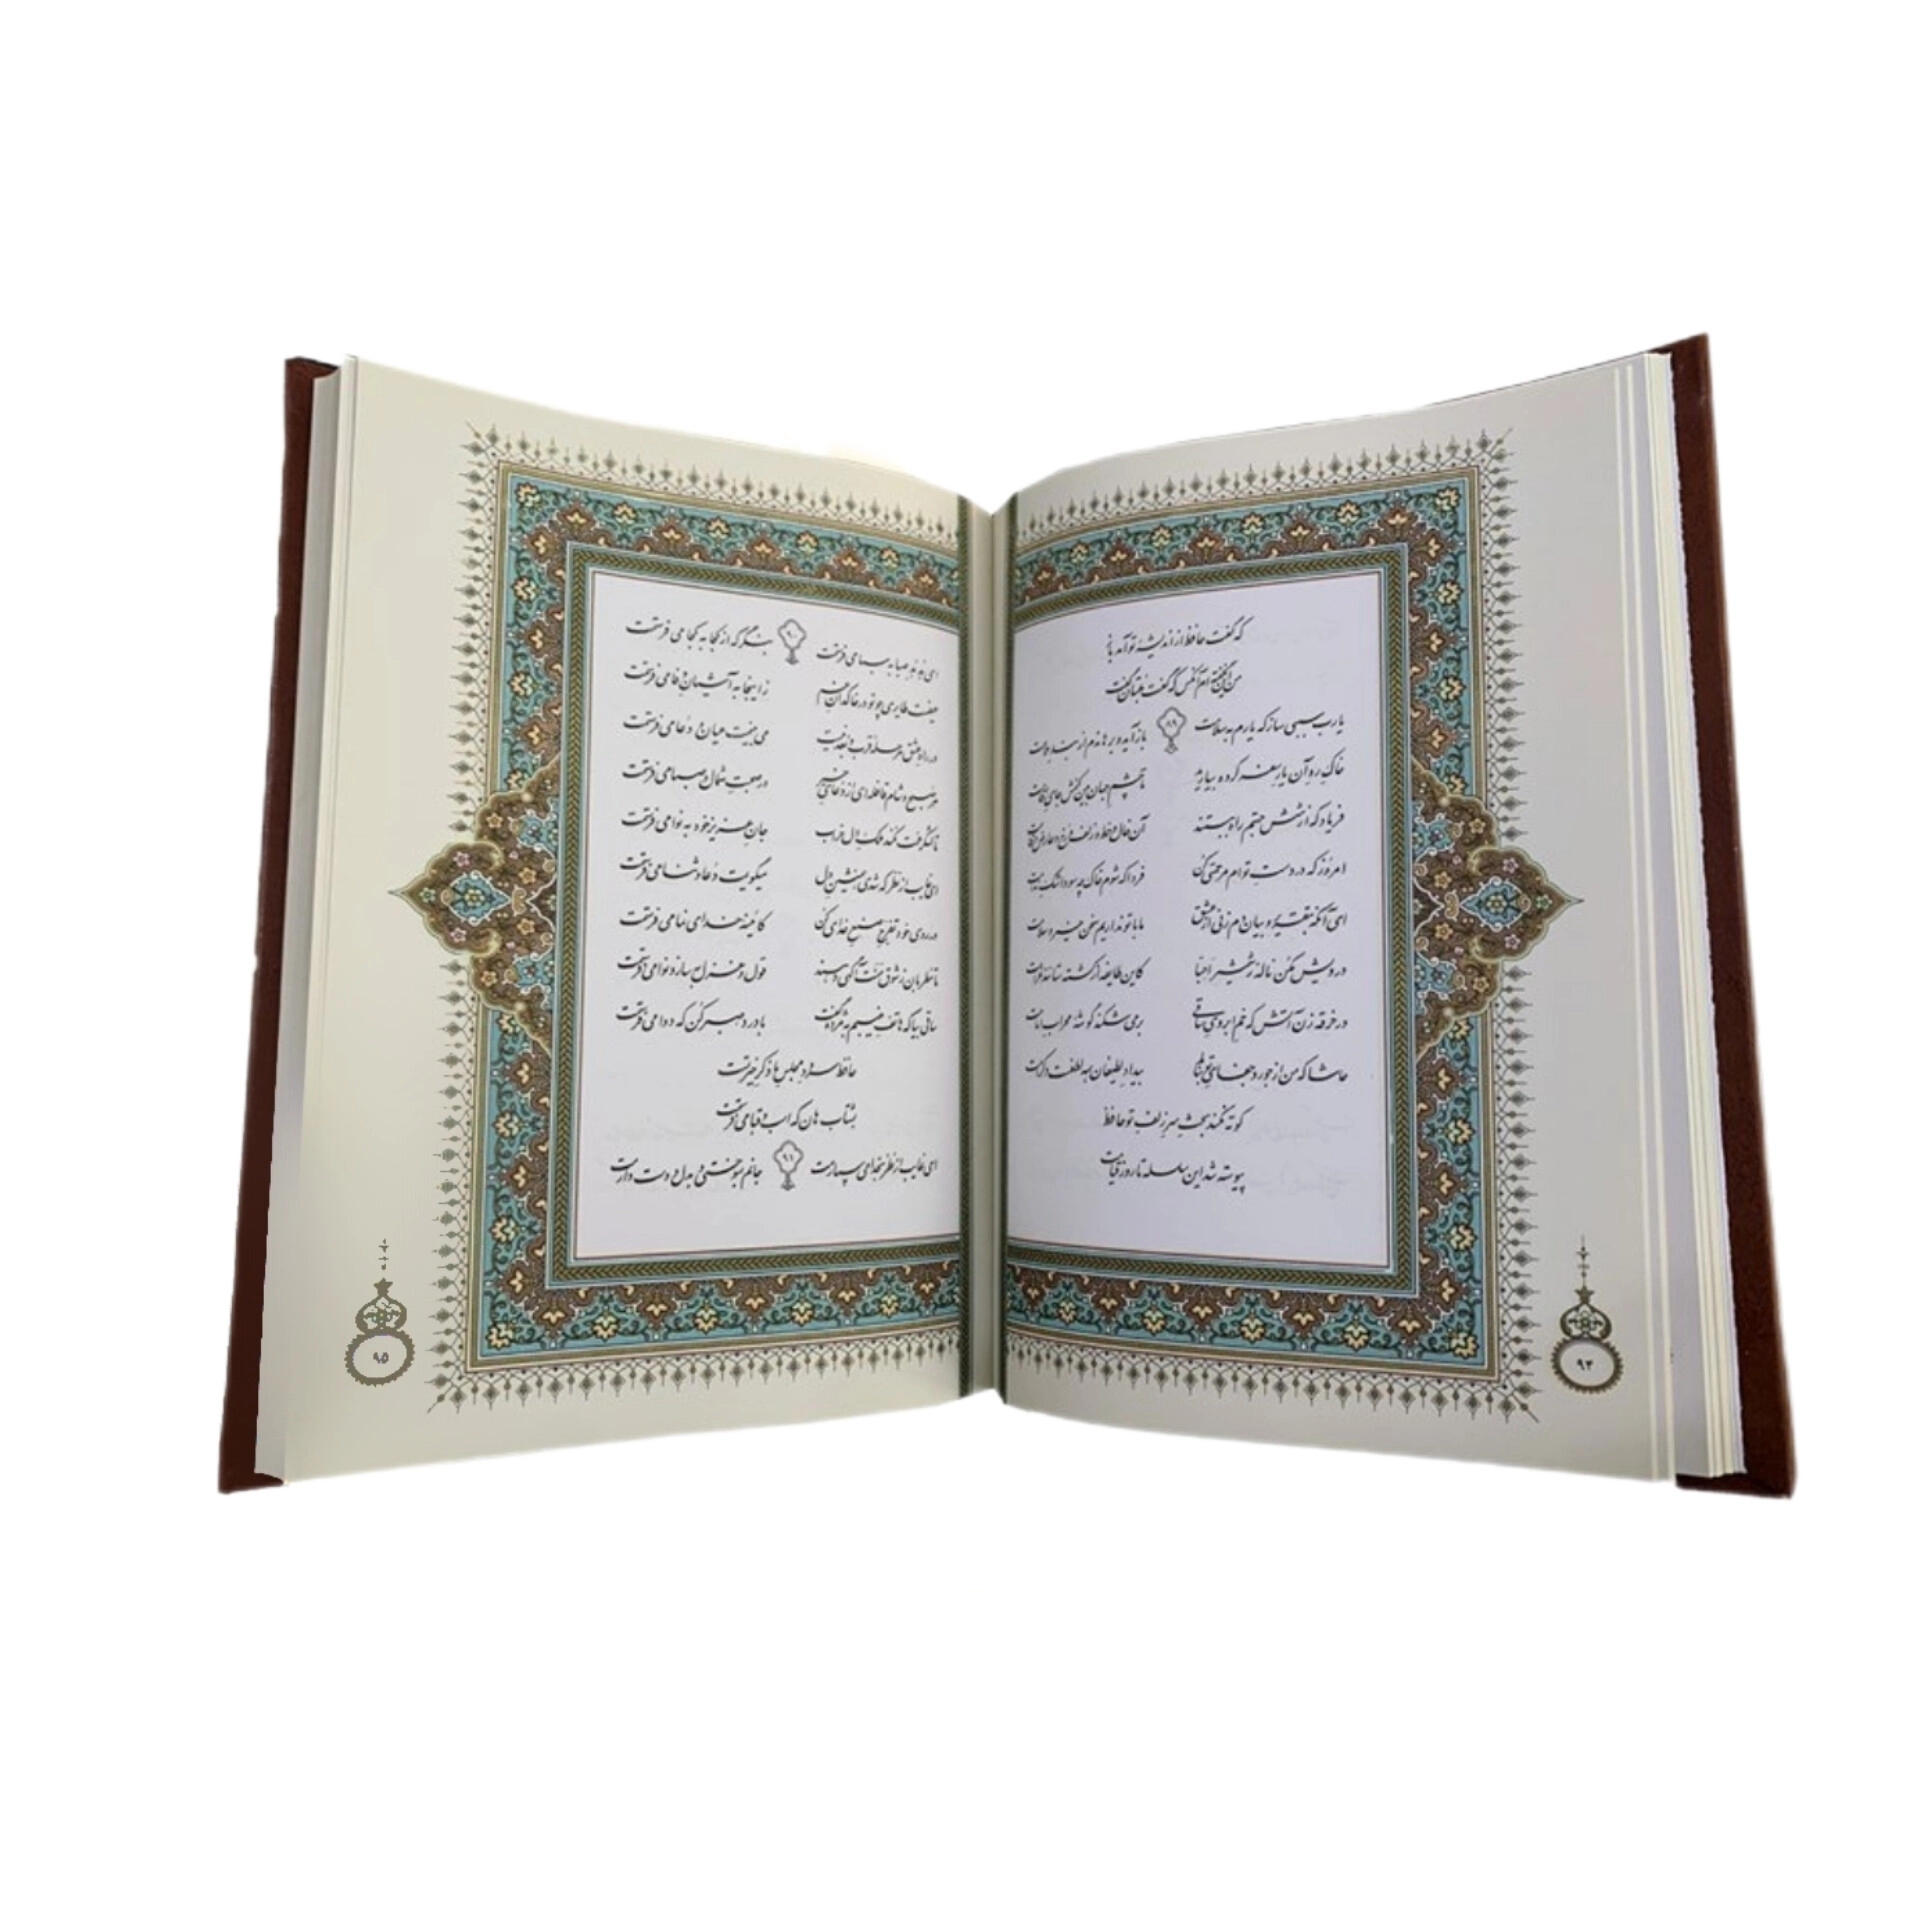 که گفت حافظ از اندیشهٔ تو آمد باز
من این نگفته‌ام آنکس که گفت بهتان گفت
۸۹
یارب سببی ساز که یارم به سلامت بازآید و برهاندم از بند ملامت
خاک ره آن یار سفر کرده بیارید تا چشم جهان بین کنمش جای اقامت
فریاد که از شش جهتم راه ببستند آن خال و خط و زلف و رخ و عارض و قامت
امروز که در دست توام مرحمتی کن فردا که شوم خاک چه سود اشک ندامت
ای آنکه بتقریر و بیان دم زنی از عشق ما با تو نداریم سخن خیر و سلامت
درویش مکن ناله ز شمشیر احبا کاین طایفه از کشته ستانند غرامت
در خرقه زن آتش که خم ابروی ساقی بر می شکند گوشهٔ محراب امامت
حاشا که من از جور و جفای تو بنالم بیداد لطیفان همه لطفست و کرامت
کوته نکند بحث سر زلف تو حافظ
پیوسته شد این سلسله تا روز قیامت
۹۴
۹۰
ای هدهد صبا به سبا می فرستمت بنگر که از کجا به کجا می فرستمت
حیفست طایری چو تو در خاکدان غم زاینجا به آشیان وفا می فرستمت
در راه عشق مرحلهٔ قرب و بعد نیست می بینمت عیان و دعا می فرستمت
هر صبح و شام قافله‌ای از دعای خیر در صحبت شمال و صبا می فرستمت
تا لشکر غمت نکند ملک دل خراب جان عزیز خود به نوا می فرستمت
ای غایب از نظر که شدی همنشین دل میگویمت دعا و ثنا می فرستمت
در روی خود تفرج صنع خدای کن کائینه خدای نما می فرستمت
تا مطربان ز شوق منت آگهی دهند قول و غزل بساز و نوا می فرستمت
ساقی بیا که هاتف غیبم به مژده گفت با درد صبر کن که دوا می فرستمت
حافظ سرود مجلس ما ذکر خیر تست
بشتاب هان که اسب و قبا می فرستمت
۹۱
ای غایب از نظر بخدا می سپارمت جانم بسوختی و بدل دوست دارمت
۹۵